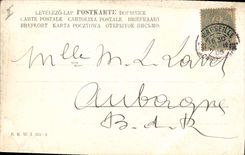 LEVELEZŐ-LAP POSTKARTE DOPISNICE
CARTE POSTALE CARTOLINA POSTALE BRIEFKAART
BREFKORT KARTA POCZTOWA ОТКРЫТОЕ ПИСЬМО.
MARSEILLE
Mlle M. L.
Aubagne
B. d. R